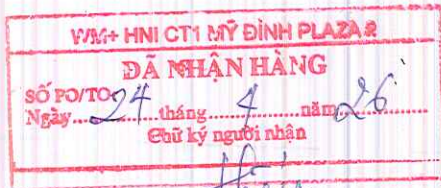 WM+ HNI CT1 MỸ ĐÌNH PLAZA 2
ĐÃ NHẬN HÀNG
SỐ PO/TO:
Ngày 24 tháng 4 năm 26
Chữ ký người nhận